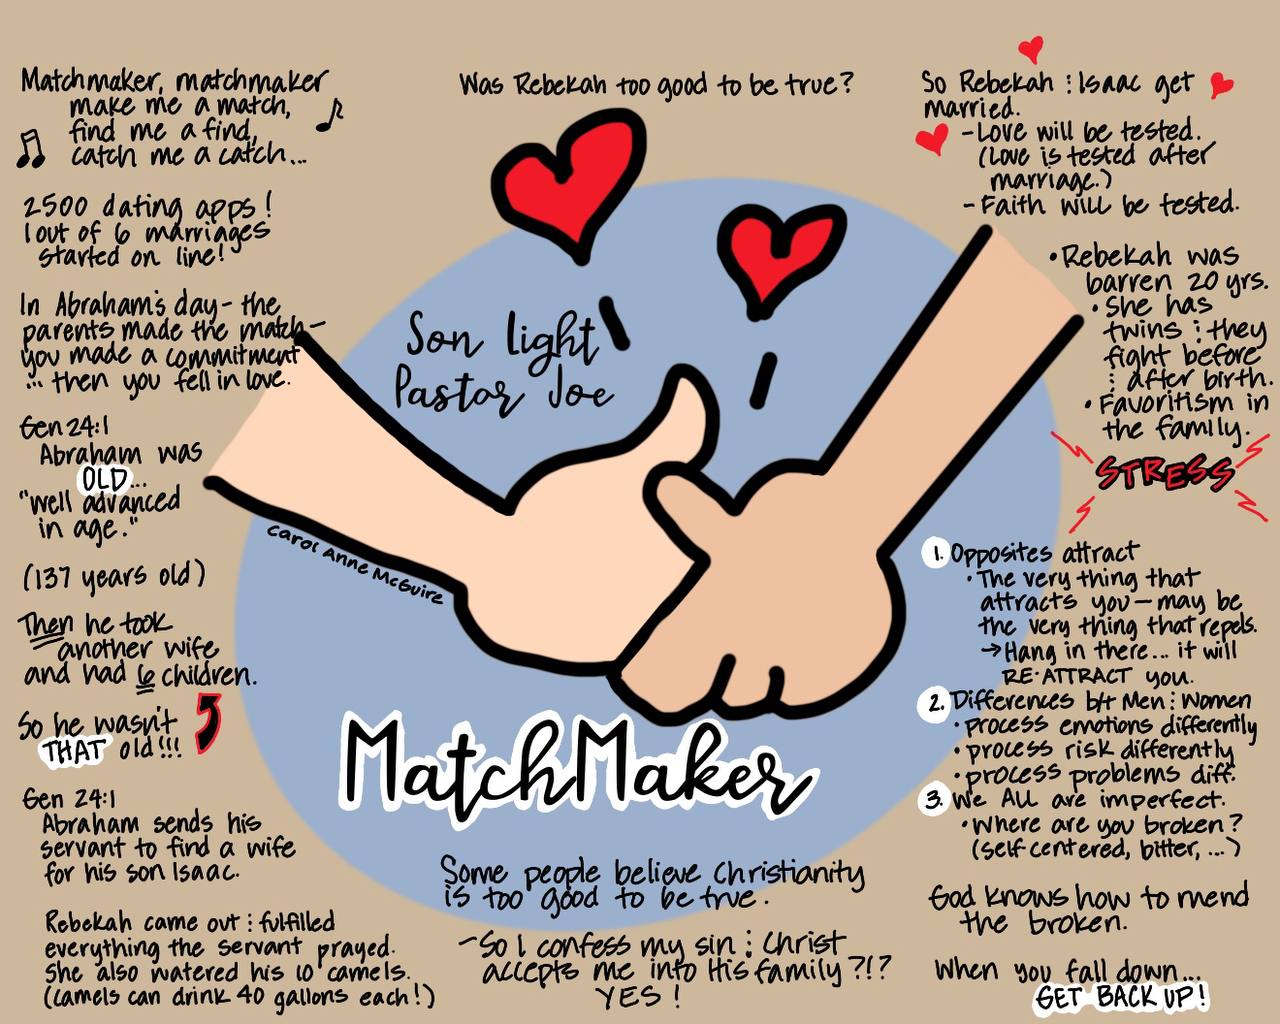 Matchmaker, matchmaker
make me a match,
find me a find,
catch me a catch...
2500 dating apps!
1 out of 6 marriages
started on line!
In Abraham's day - the
parents made the match -
you made a commitment
... then you fell in love.
Gen 24:1
Abraham was
OLD...
"well advanced
in age."
(137 years old)
Then he took
another wife
and had 6 children.
So he wasn't
THAT old!!!
Gen 24:1
Abraham sends his
servant to find a wife
for his son Isaac.
Rebekah came out : fulfilled
everything the servant prayed.
She also watered his 10 camels.
(Camels can drink 40 gallons each!)
Was Rebekah too good to be true?
Son Light
Pastor Joe
Carol Anne McGuire
MatchMaker
Some people believe Christianity
is too good to be true.
- So I confess my sin : Christ
accepts me into His family?!?
YES!
So Rebekah : Isaac get
married.
- Love will be tested.
(Love is tested after
marriage.)
- Faith will be tested.
• Rebekah was
barren 20 yrs.
• She has
twins : they
fight before
: after birth.
• Favoritism in
the family.
STRESS
1. Opposites attract
• The very thing that
attracts you - may be
the very thing that repels.
→ Hang in there... it will
RE-ATTRACT you.
2. Differences b/t Men : Women
• process emotions differently
• process risk differently
• process problems diff.
3. We ALL are imperfect.
• Where are you broken?
(self centered, bitter, ...)
God knows how to mend
the broken.
When you fall down...
GET BACK UP!